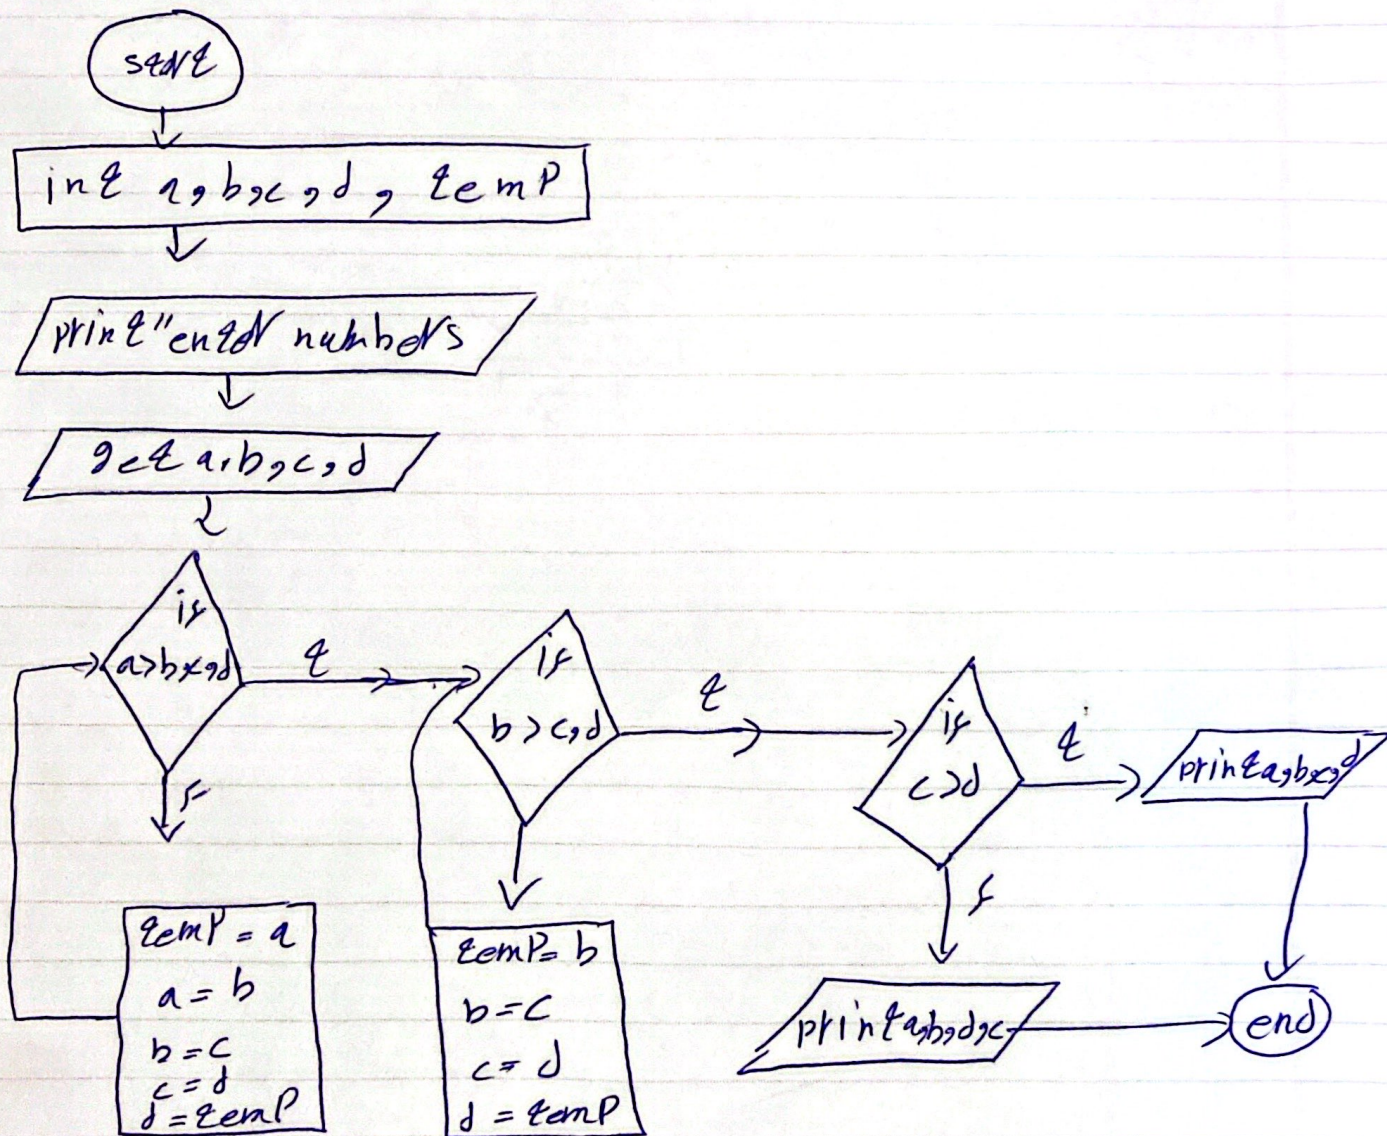 start
int a,b,c,d, temp
print "enter numbers
get a,b,c,d
if
a>b,c,d
t
f
temp = a
a = b
b = c
c = d
d = temp
if
b > c,d
t
temp = b
b = c
c = d
d = temp
if
c > d
t
f
print a,b,c,d
print a,b,d,c
end